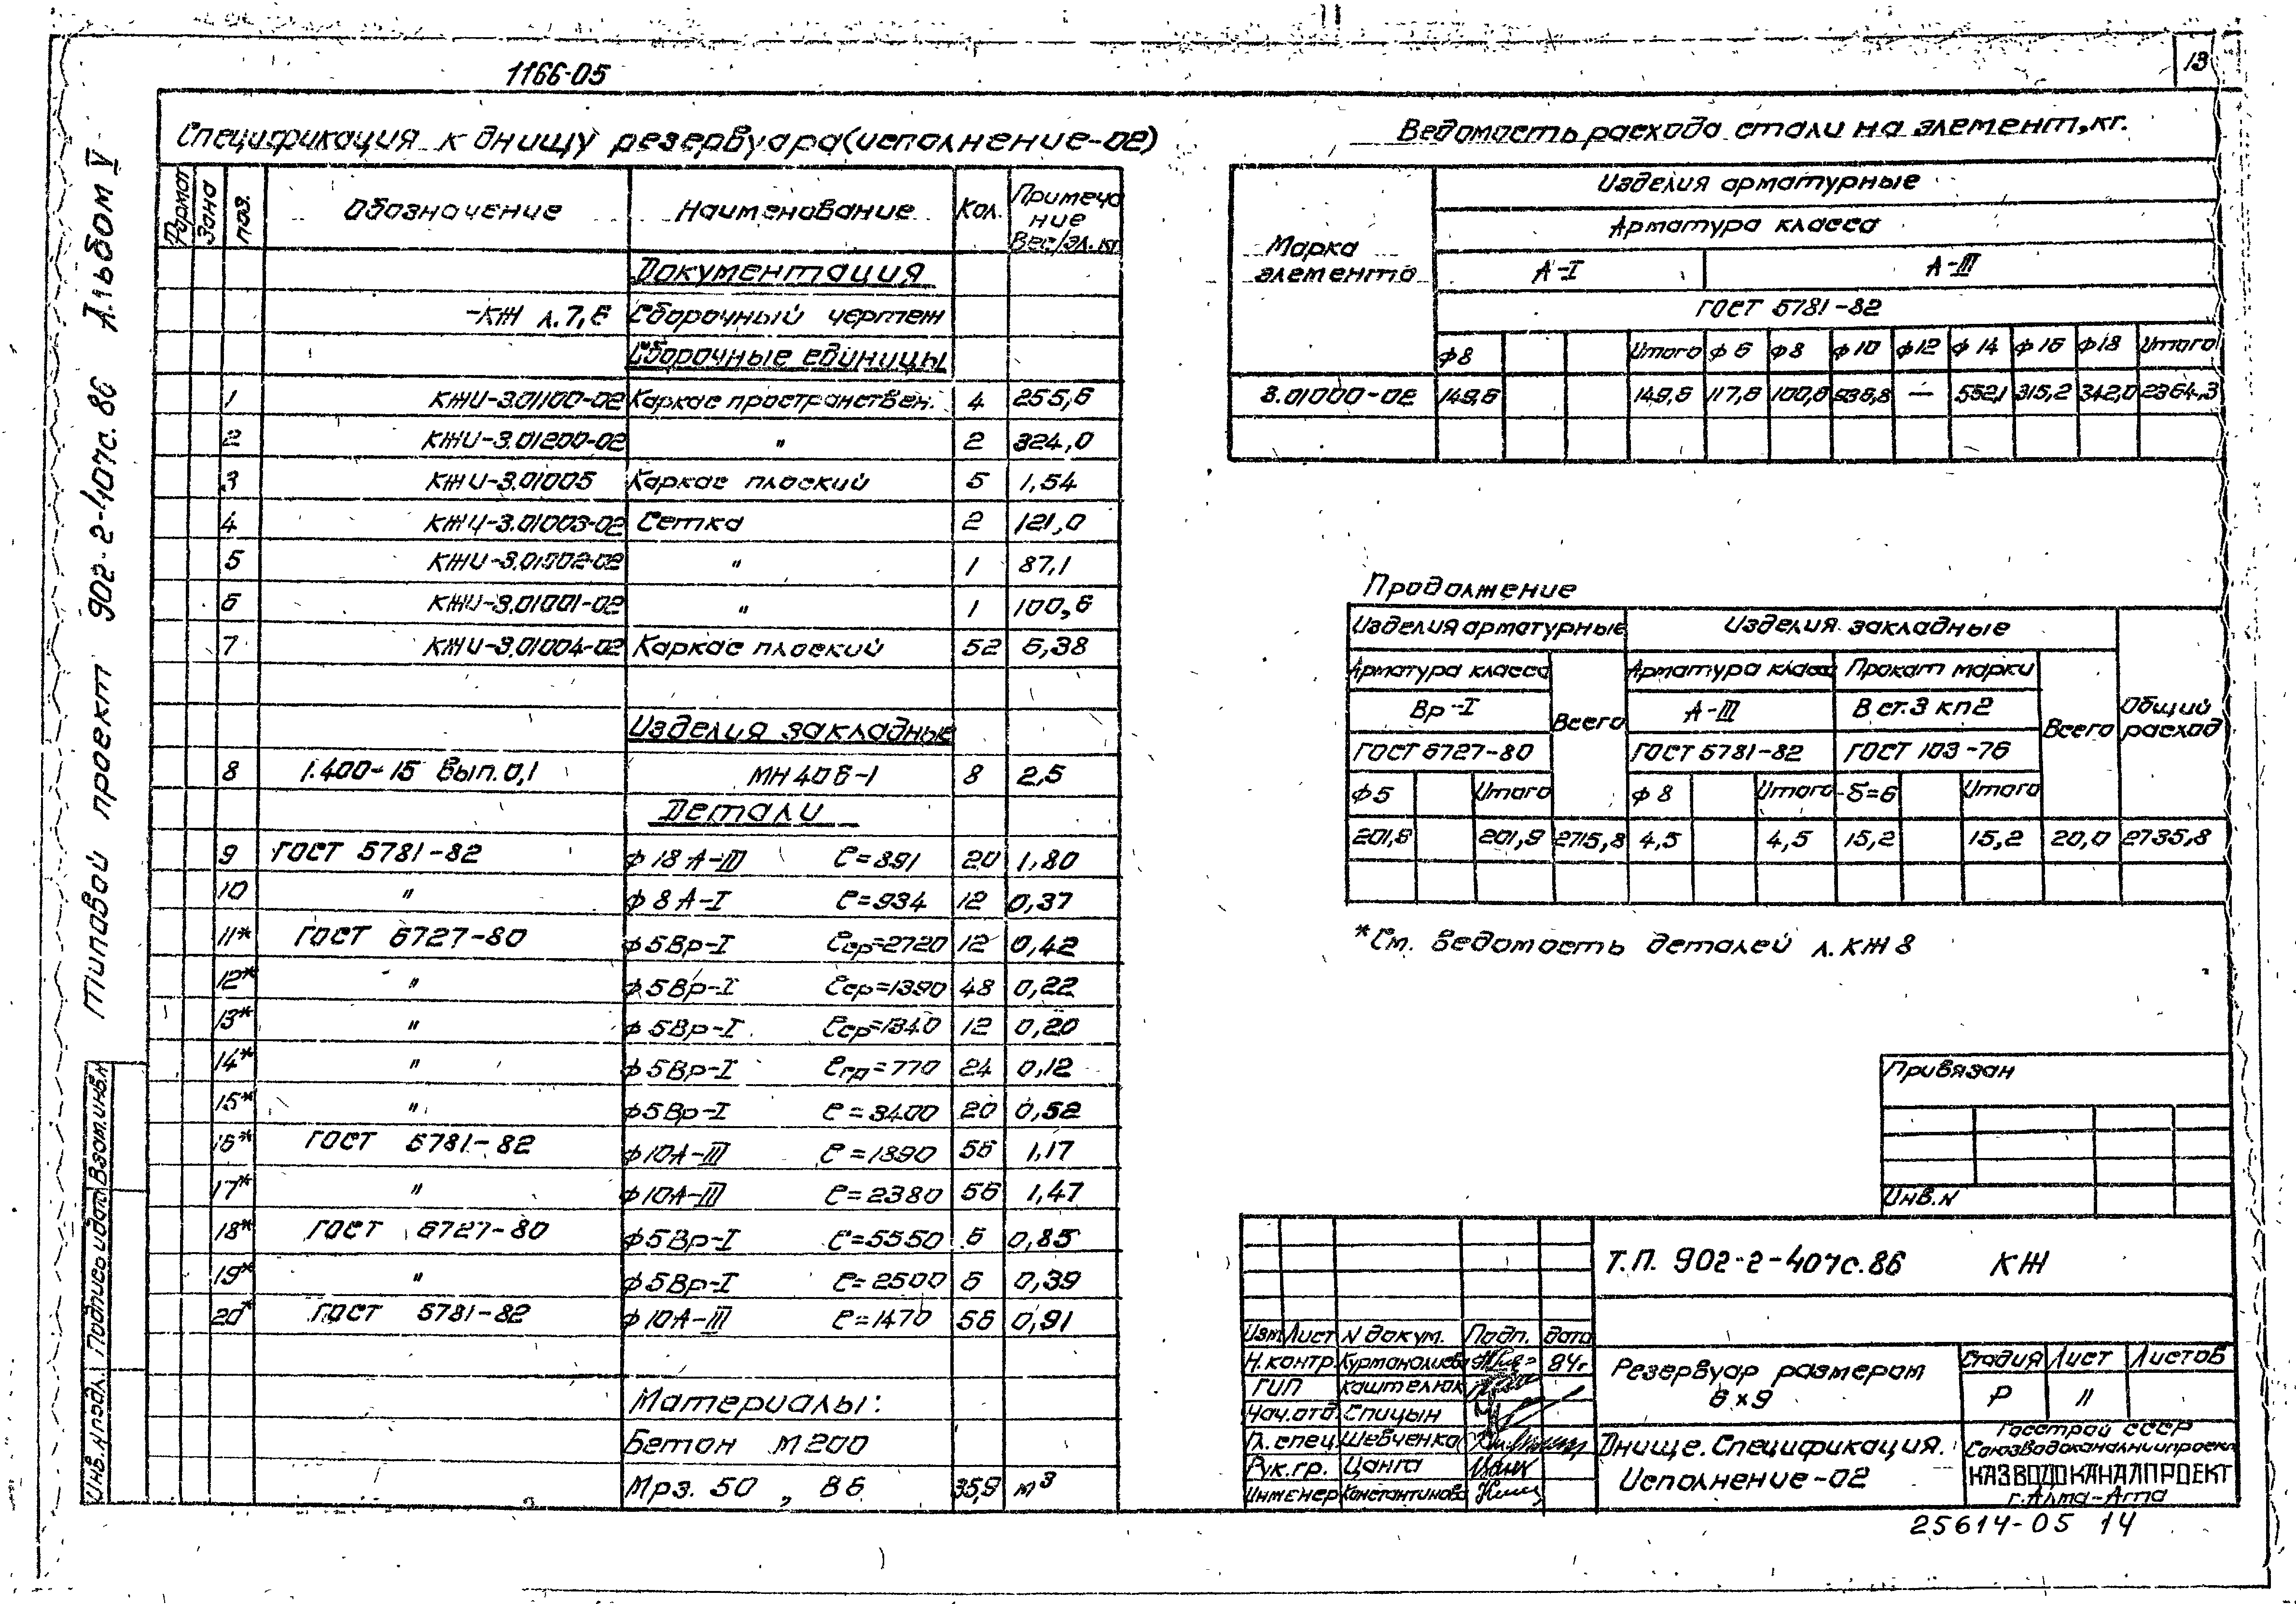 1166-05
13
Типовой проект 902-2-407с.86 Альбом V
Спецификация к днищу резервуара (исполнение-02)
Формат Зона поз. Обозначение Наименование Кол. Примечание Вес/эл.кг
Документация
-КЖ л.7,8 Сборочный чертеж
Сборочные единицы
1 КЖИ-3.01100-02 Каркас пространствен. 4 255,6
2 КЖИ-3.01200-02 " 2 324,0
3 КЖИ-3.01005 Каркас плоский 5 1,54
4 КЖИ-3.01003-02 Сетка 2 121,0
5 КЖИ-3.01002-02 " 1 87,1
6 КЖИ-3.01001-02 " 1 100,6
7 КЖИ-3.01004-02 Каркас плоский 52 6,38
Изделия закладные
8 1.400-15 вып.0,1 МН406-1 8 2,5
Детали
9 ГОСТ 5781-82 ф18 А-III ℓ=891 20 1,80
10 " ф8А-I ℓ=934 12 0,37
11* ГОСТ 6727-80 ф5Вр-I ℓср=2720 12 0,42
12* " ф5Вр-I ℓср=1390 48 0,22
13* " ф5Вр-I ℓср=1340 12 0,20
14* " ф5Вр-I ℓср=770 24 0,12
15* " ф5Вр-I ℓ=3400 20 0,52
16* ГОСТ 5781-82 ф10А-III ℓ=1890 56 1,17
17* " ф10А-III ℓ=2380 56 1,47
18* ГОСТ 6727-80 ф5Вр-I ℓ=5550 6 0,85
19* " ф5Вр-I ℓ=2500 6 0,39
20* ГОСТ 5781-82 ф10А-III ℓ=1470 56 0,91
Материалы:
Бетон М200
Мрз. 50, В6 35,9 м³
Ведомость расхода стали на элемент, кг.
Марка элемента
Изделия арматурные
Арматура класса
А-I А-III
ГОСТ 5781-82
ф8 Итого ф6 ф8 ф10 ф12 ф14 ф16 ф18 Итого
3.01000-02 149,6 149,6 117,6 100,6 936,8 — 552,1 315,2 342,0 2364,3
Продолжение
Изделия арматурные Изделия закладные Общий расход
Арматура класса Всего Арматура класса Прокат марки Всего
Вр-I А-III Вст.3 кп2
ГОСТ 6727-80 ГОСТ 5781-82 ГОСТ 103-76
ф5 Итого ф8 Итого δ=6 Итого
201,9 201,9 2715,8 4,5 4,5 15,2 15,2 20,0 2735,8
*См. ведомость деталей л.КЖ8
Привязан
Инв.N
Т.П. 902-2-407с.86 КЖ
Изм Лист N докум. Подп. дата
Н.контр. Курманалиева 84г
ГИП Каштелюк
Нач.отд. Спицын
Гл. спец Шевченко
Рук.гр. Цанга
Инженер Константинова
Резервуар размером
6×9
Стадия Лист Листов
Р 11
Днище. Спецификация.
Исполнение-02
Госстрой СССР
Союзводоканалниипроект
КАЗВОДОКАНАЛПРОЕКТ
г. Алма-Ата
Инв.N подл. Подпись и дата Взам.инв.N
25614-05 14